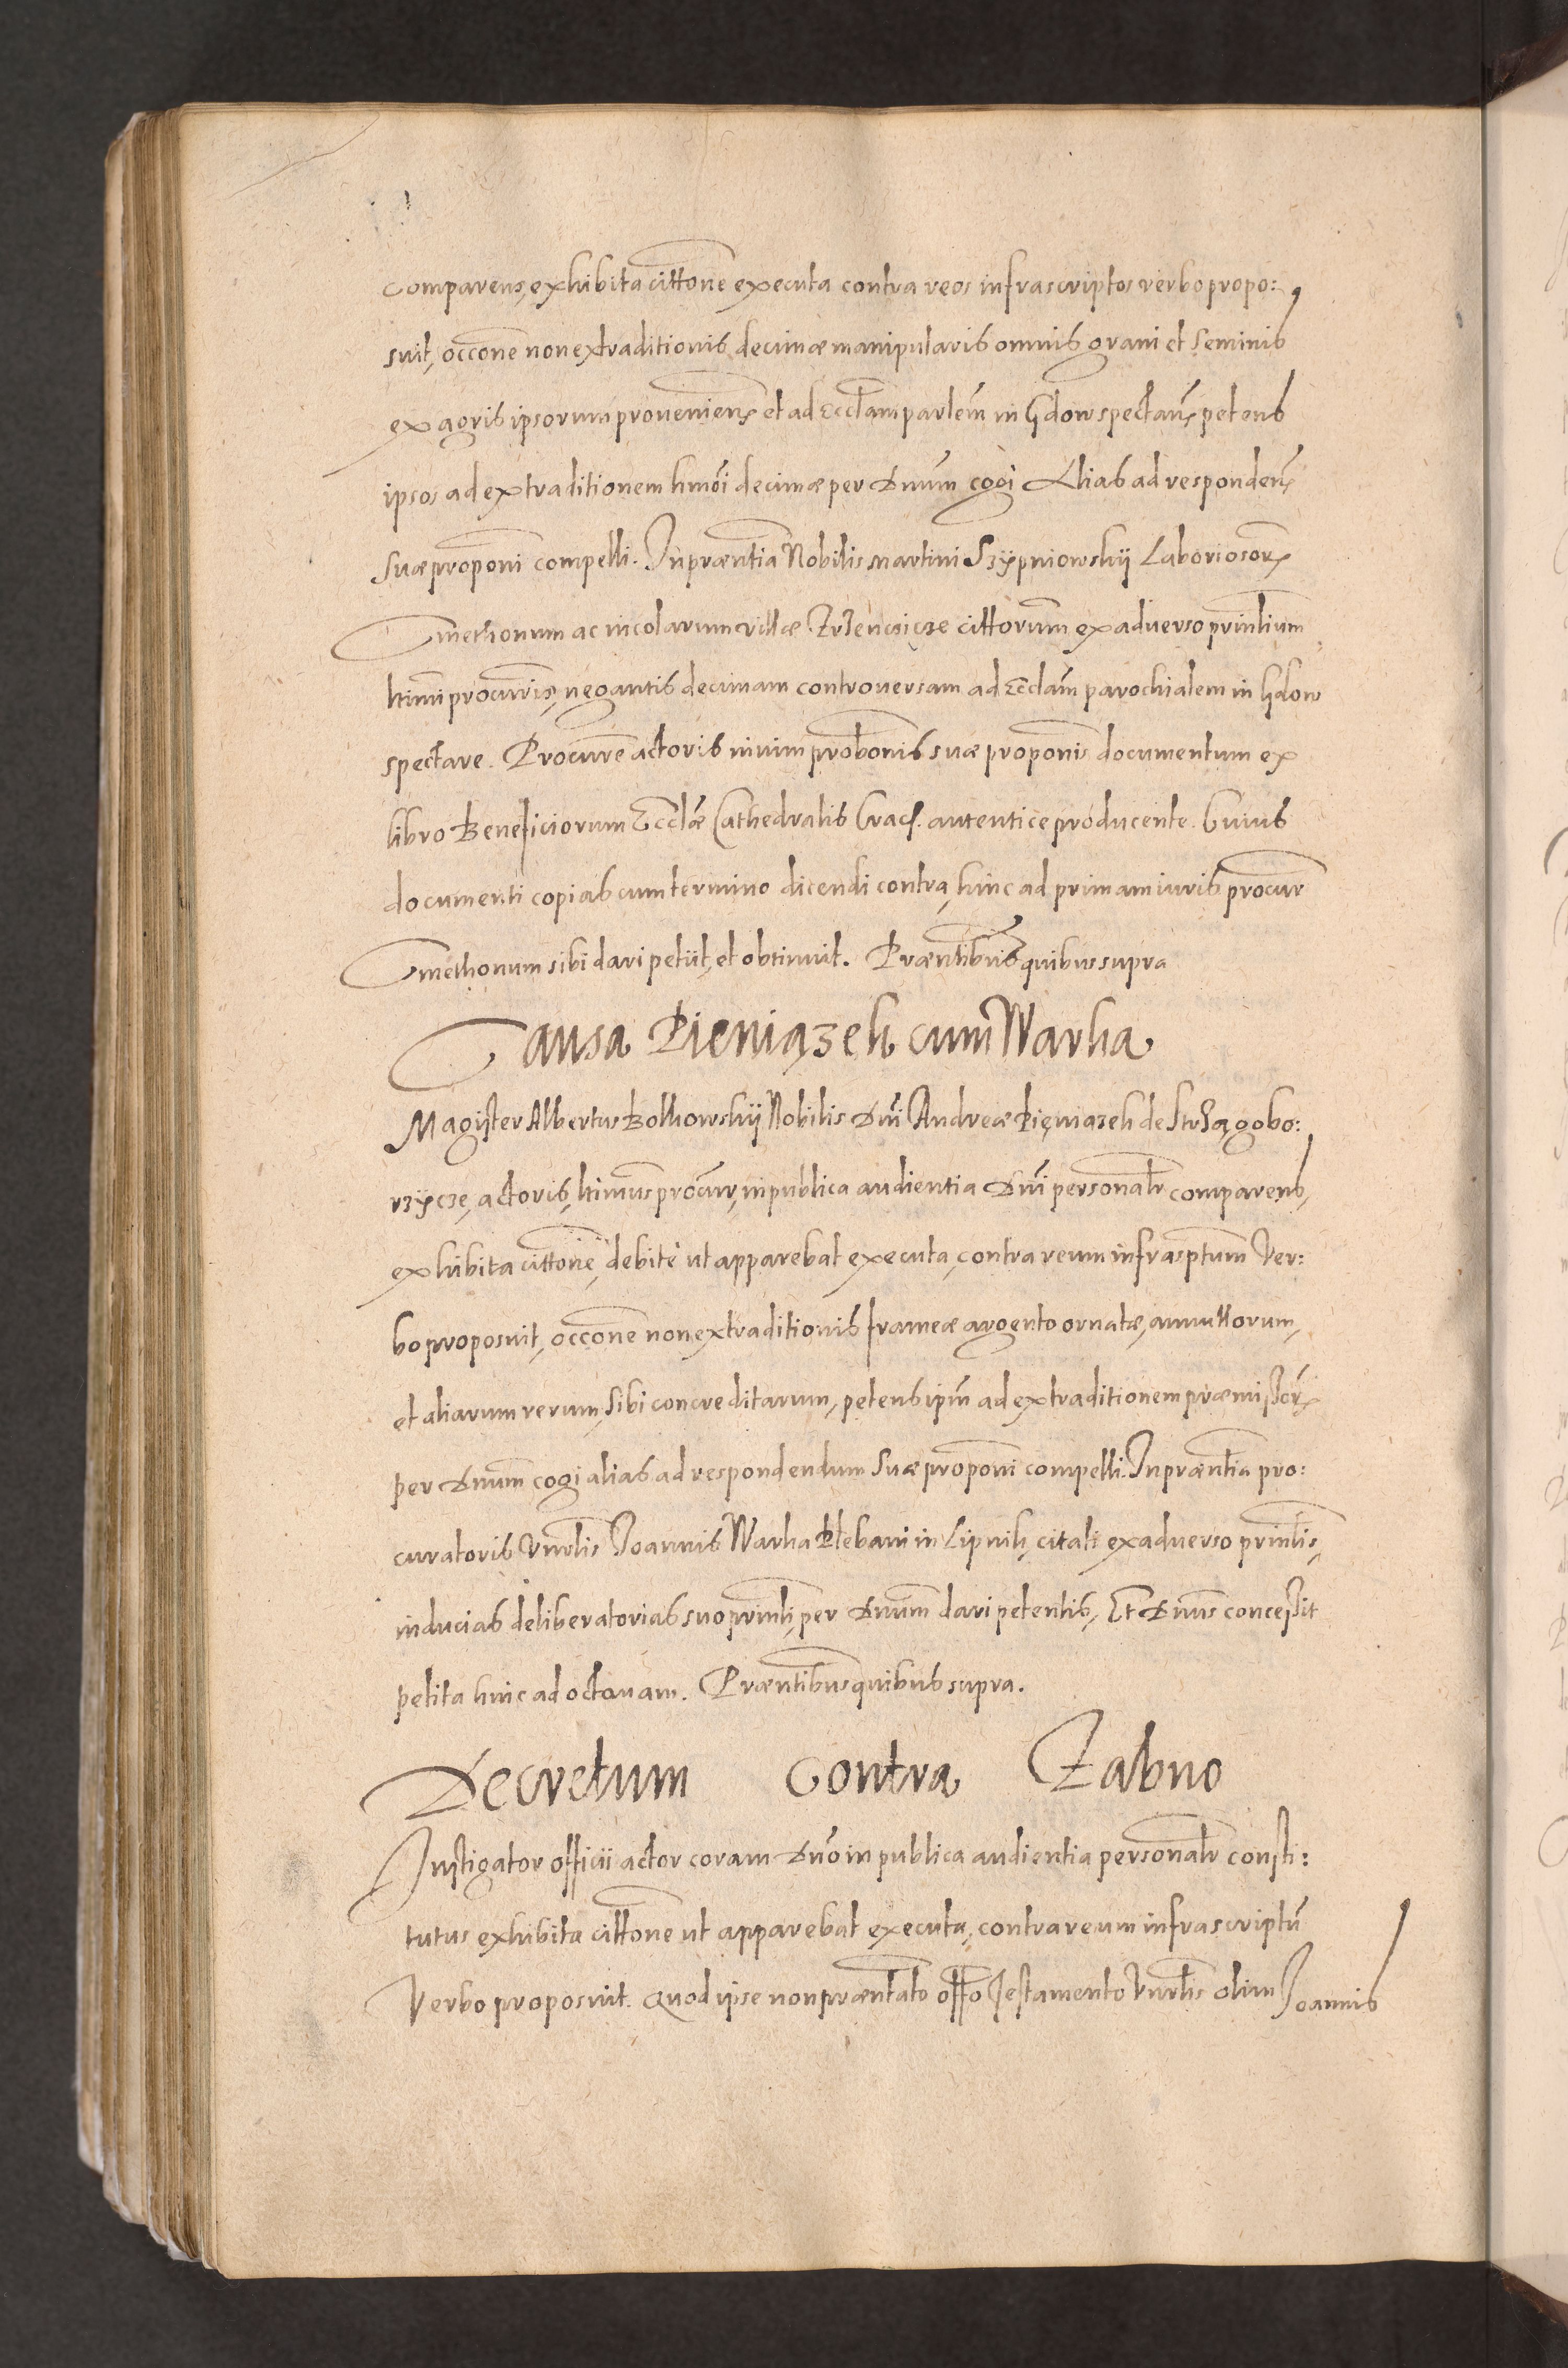 comparens, exhibita cittone executa contra reos infrascriptos verbo propo:
suit, occone non extraditionis decimæ manipularis omnis grani et seminis
ex agris ipsorum proueniens et ad Eccłam parlem in Gdow spectans petens
ipsos ad extraditionem hmoi decimæ per Dnum cogi Alias ad responden
suæ proponi compelli. In præntia Nobilis Martini Szÿpniowskÿ Laboriosor
Cmethonum ac incolarum villæ cittorum ex aduerso prinlium
ltimi procuris, negantis decimam controuersam ad Eccłam parochialem in Gdow
spectare. Procure actoris in vim probonis suæ proponis documentum ex
libro Beneficiorum Eccłæ Cathedralis Crac. autentice producente. Cuius
documenti copias cum termino dicendi contra, hinc ad primam iuris procur
Cmethonum sibi dari petiit, et obtinuit. Præntibus quibus supra
Causa Pieniązek cum Warka
Magister Albertus Bolkowskÿ Nobilis Dni Andreæ Pięniazek de Strzagobo:
rzÿcze, actoris, ltimus procur, in publica audientia Dni personalr comparens,
exhibita cittone, debite ut apparebat executa, contra reum infrasptum Ver:
bo proposuit, occone non extraditionis frameæ argento ornatæ, annullorum,
et aliarum rerum, sibi concreditarum, petens ipm ad extraditionem præmissor
per Dnum cogi alias ad respondendum suæ proponi compelli. In præntia pro:
curatoris Vnrlis Joannis Warka Plebani in Lipnik, citati ex aduerso prinlis,
inducias deliberatorias suo prinli, per Dnum dari petentis, Et Dnus concessit
petita hinc ad octauam. Præntibus quibus supra.
Decretum contra Zabno
Instigator officii actor coram Dno in publica audientia personalr consti:
tutus exhibita cittone ut apparebat executa, contra reum infrascriptu
Verbo proposuit. Quod ipse non præntato offo Testamento Vnrlis olim Joannis